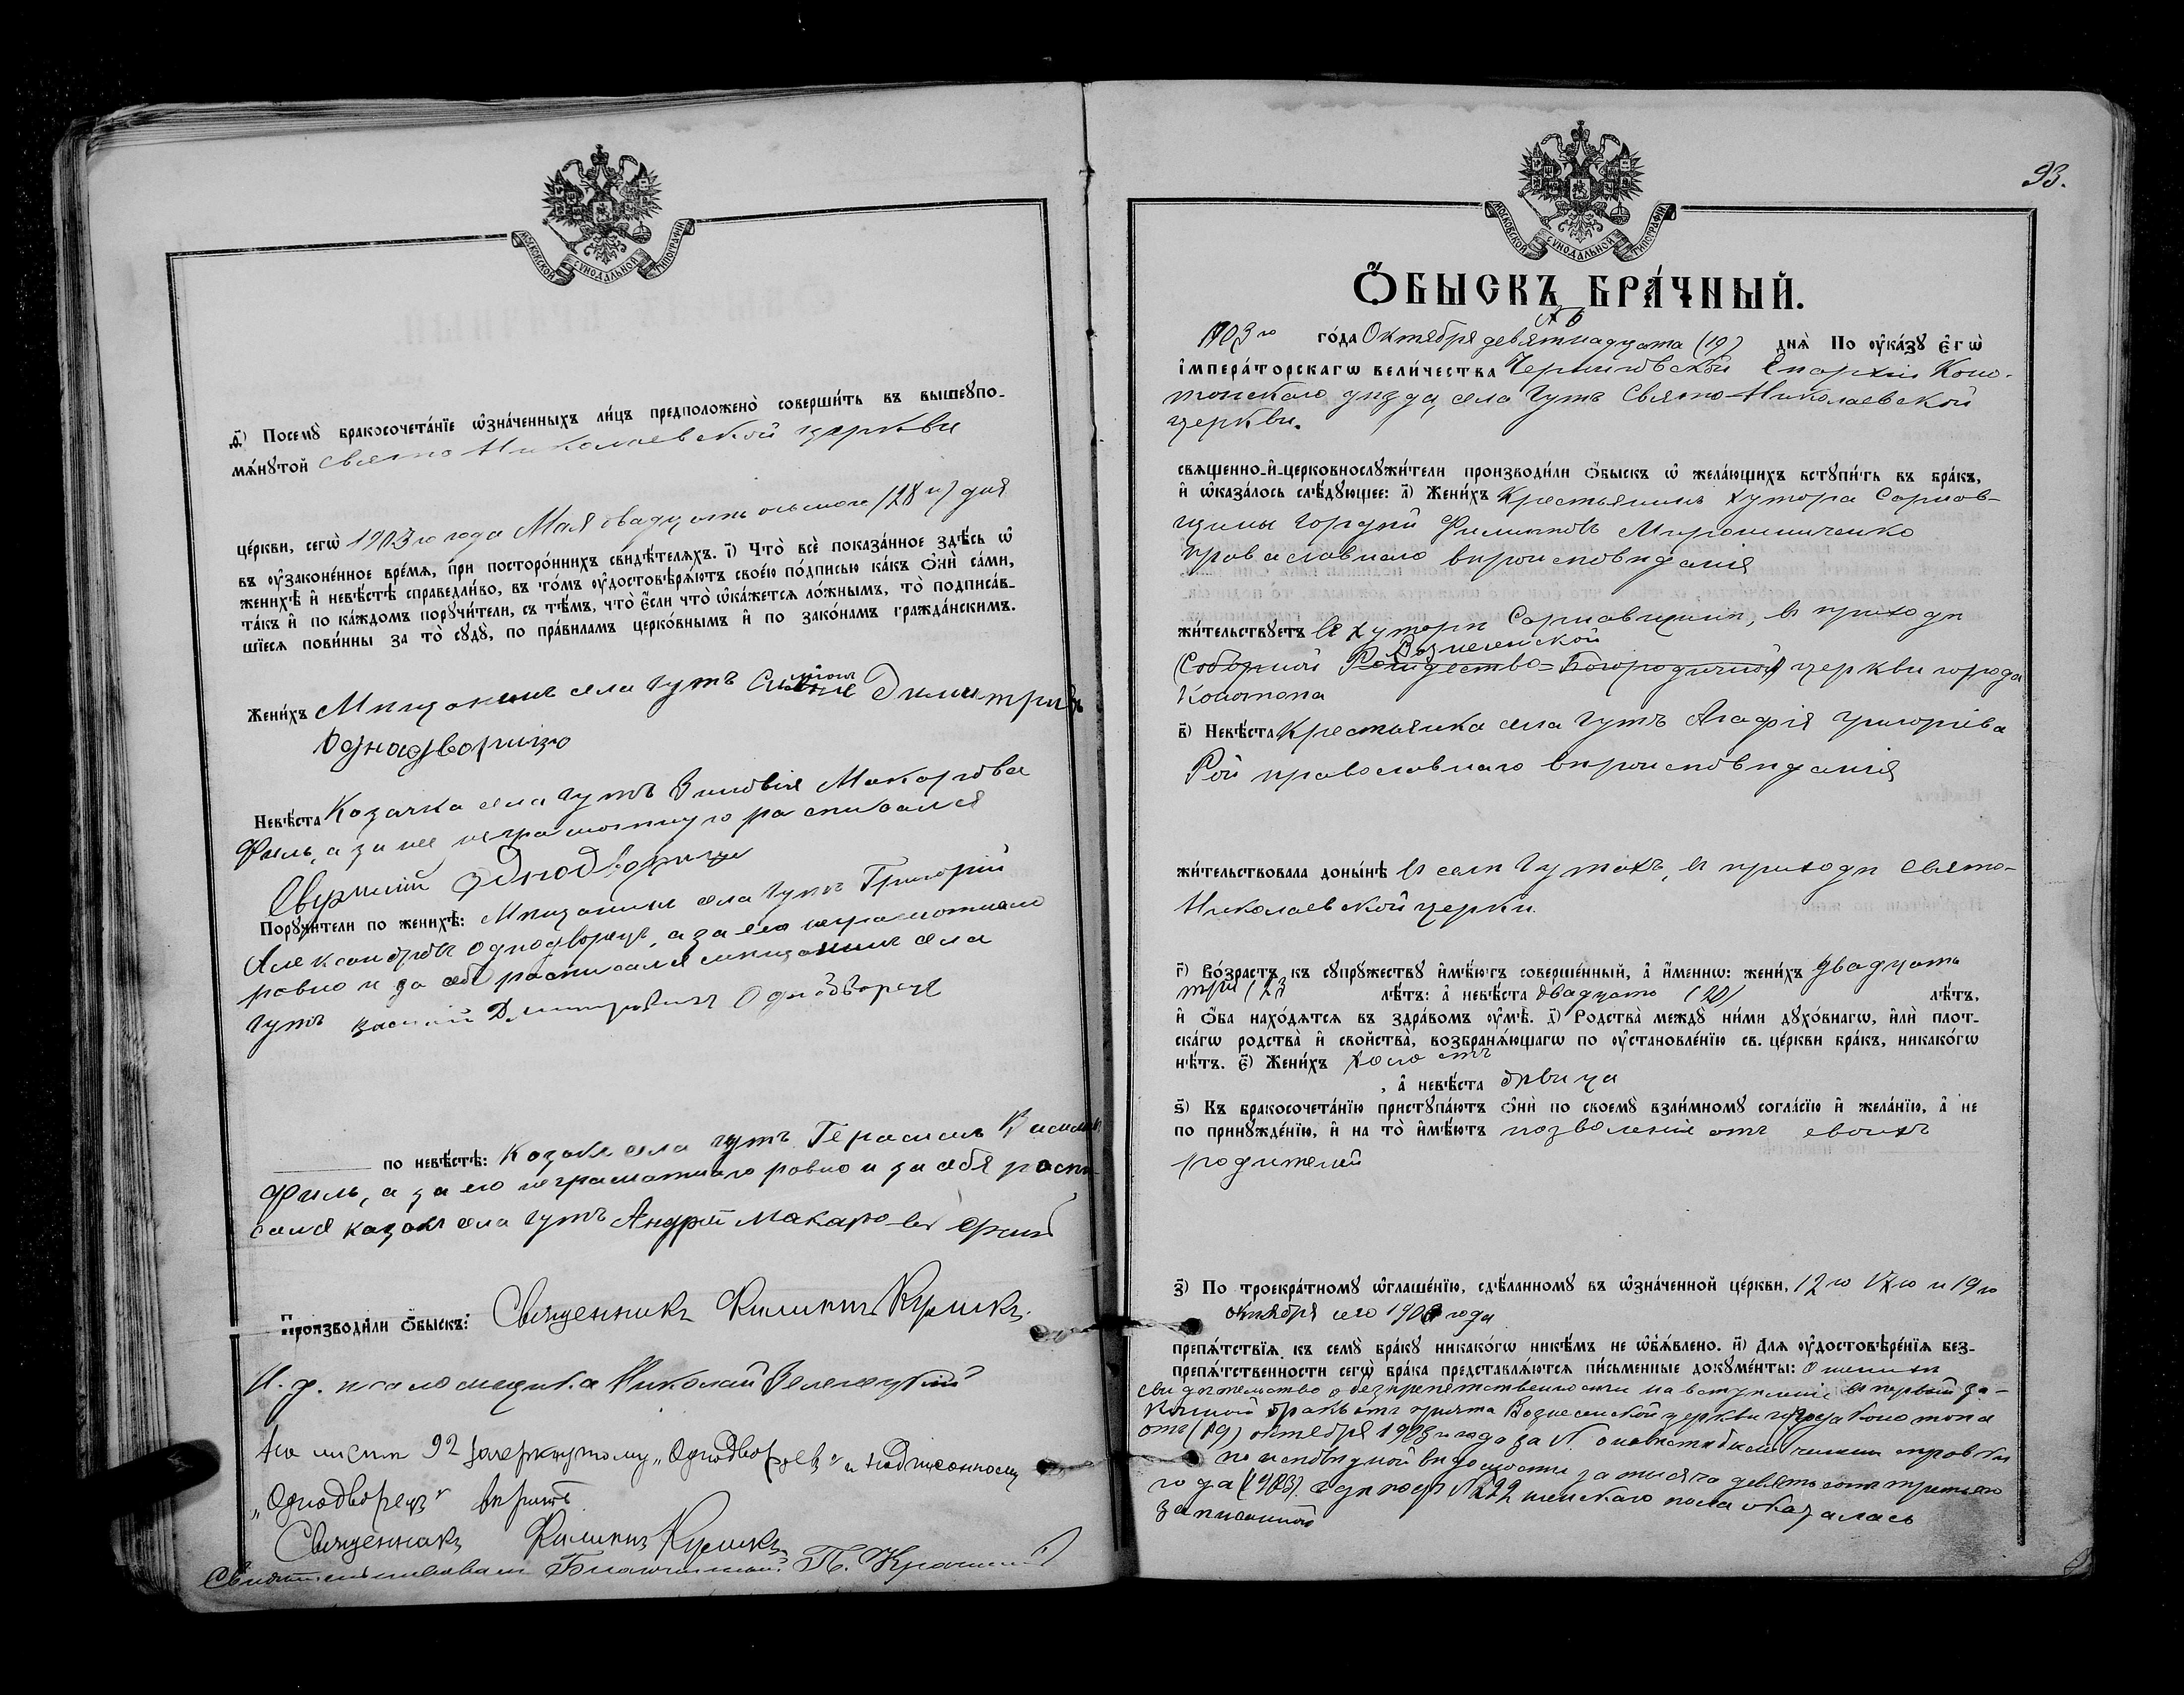 МОСКОВСКОЙ СѴНОДАЛЬНОЙ ТИПОГРАФІИ
Ѳ҃) Посемꙋ̀ бракосочета́нїе ѡ҆зна́ченныхъ ли́цъ предположено̀ соверши́ть въ вышеꙋпо-
мѧ́нꙋтой Свято Николаевской церкви
це́ркви, сегѡ̀ 1903 го года Мая двадцать осьмого (28 го) дня
въ ᲂу҆законе́нное вре́мѧ, при посторо́ннихъ свидѣ́телѧхъ. і҃) Что̀ всѐ показа́нное здѣ́сь ѡ҆
женихѣ̀ и҆ невѣ́стѣ справедли́во, въ то́мъ ᲂу҆достовѣрѧ́ютъ свое́ю по́дписью ка́къ ѻ҆нѝ са́ми,
та́къ и҆ по ка́ждомъ порꙋчи́тели, съ тѣ́мъ, что̀ є҆́сли что̀ ѡ҆ка́жетсѧ ло́жнымъ, то̀ подписа́в-
шїесѧ пови́нны за то̀ сꙋдꙋ̀, по пра́виламъ церко́внымъ и҆ по зако́намъ гражда́нскимъ.
Жени́хъ Мещанинъ села Гутъ Димитрій
Невѣ́ста Козачка села Гутъ Зиновія Макарова
Филь, а за нее неграмотную росписался
Порꙋчи́тели по женихѣ̀: Мещанинъ села Гутъ Григорій
Александровъ Однодворецъ, а за его неграмотного
ровно и за себя росписался мещанинъ села
Гутъ Димитріевичъ Однодворецъ
по невѣ́стѣ: Козакъ села Гутъ Герасимъ
Филь, а за его неграмотного ровно и за себя роспи-
сался козакъ села Гутъ Андрей Макаровъ
Производи́ли ѻ҆́быскъ: Священникъ Филиппъ Куликъ.
И. д. псаломщика Николай Зеленецкій
На листе 92 зачеркнутому „Однодворцевъ" и надписанному
„Однодворецъ" верить
Священникъ Филиппъ Куликъ
Благочинный П.
93.
МОСКОВСКОЙ СѴНОДАЛЬНОЙ ТИПОГРАФІИ
Ѻ҆́БЫСКЪ БРА́ЧНЫЙ.
1903 го го́да Октября девятнадцата (19) днѧ̀ По ᲂу҆ка́зꙋ є҆гѡ̀
і҆мпера́торскагѡ вели́чества Черниговской Епархіи Коно-
топского уезда, села Гутъ Свято-Николаевской
церкви.
свѧщенно-и҆-церковнослꙋжи́тели производи́ли ѻ҆́быскъ ѡ҆ жела́ющихъ встꙋпи́ть въ бра́къ,
и҆ ѡ҆каза́лось слѣ́дꙋющее: а҃) Жени́хъ Крестьянинъ хутора Сарнав-
щины Гордій Филиповъ Мирошниченко
православного вероисповеданія
жи́тельствꙋетъ въ хуторе Сарнавщине, въ приходе
Вознесенской
(Соборной Рождество-Богородичной) церкви города
Конотопа
в҃) Невѣ́ста Крестьянка села Гутъ Агафія Григоріева
Рой православного вероисповеданія
жи́тельствовала доны́нѣ въ селе Гутахъ, въ приходе Свято-
Николаевской церкви.
г҃) Во́зрастъ къ сꙋпрꙋ́жествꙋ и҆мѣ́ютъ соверше́нный, а҆ и҆́меннѡ: жени́хъ двадцать
три (23 лѣ́тъ: а҆ невѣ́ста двадцать (20) лѣ́тъ,
и҆ ѻ҆́ба нахо́дѧтсѧ въ здра́вомъ ᲂу҆мѣ̀. д҃) Родства̀ междꙋ̀ ни́ми дꙋхо́внагѡ, и҆лѝ плот-
ска́гѡ родства̀ и҆ свойства̀, возбранѧ́ющагѡ по ᲂу҆становле́нїю св. це́ркви бра́къ, никако́гѡ
нѣ́тъ. є҃) Жени́хъ холостъ
, а҆ невѣ́ста девица
ѕ҃) Къ бракосочета́нїю пристꙋпа́ютъ ѻ҆нѝ по своемꙋ̀ взаи́мномꙋ согла́сїю и҆ жела́нїю, а҆ не
по принꙋжде́нїю, и҆ на то̀ и҆мѣ́ютъ позволеніе отъ своихъ
родителей
з҃) По троекра́тномꙋ ѡ҆глаше́нїю, сдѣ́ланномꙋ въ ѡ҆зна́ченной це́ркви, 12 го 17 го и 19 го
октября сего 1903 года
препѧ́тствїѧ къ семꙋ̀ бра́кꙋ никако́гѡ никѣ́мъ не ѡ҆бъѧ́влено. и҃) Длѧ ᲂу҆достовѣре́нїѧ без-
препѧ́тственности сегѡ̀ бра́ка представлѧ́ютсѧ пи́сьменные докꙋме́нты: О женихе
свидетельство о безпрепятственности на вступленіе въ первый за-
конный бракъ отъ причта Вознесенской церкви города Конотопа
отъ (19) октября 1903 года за N. о невесте
по исповедной ведомости за тысяча девятьсотъ третьего
года (1903). где подъ N 222 женскаго пола оказалась
записанной